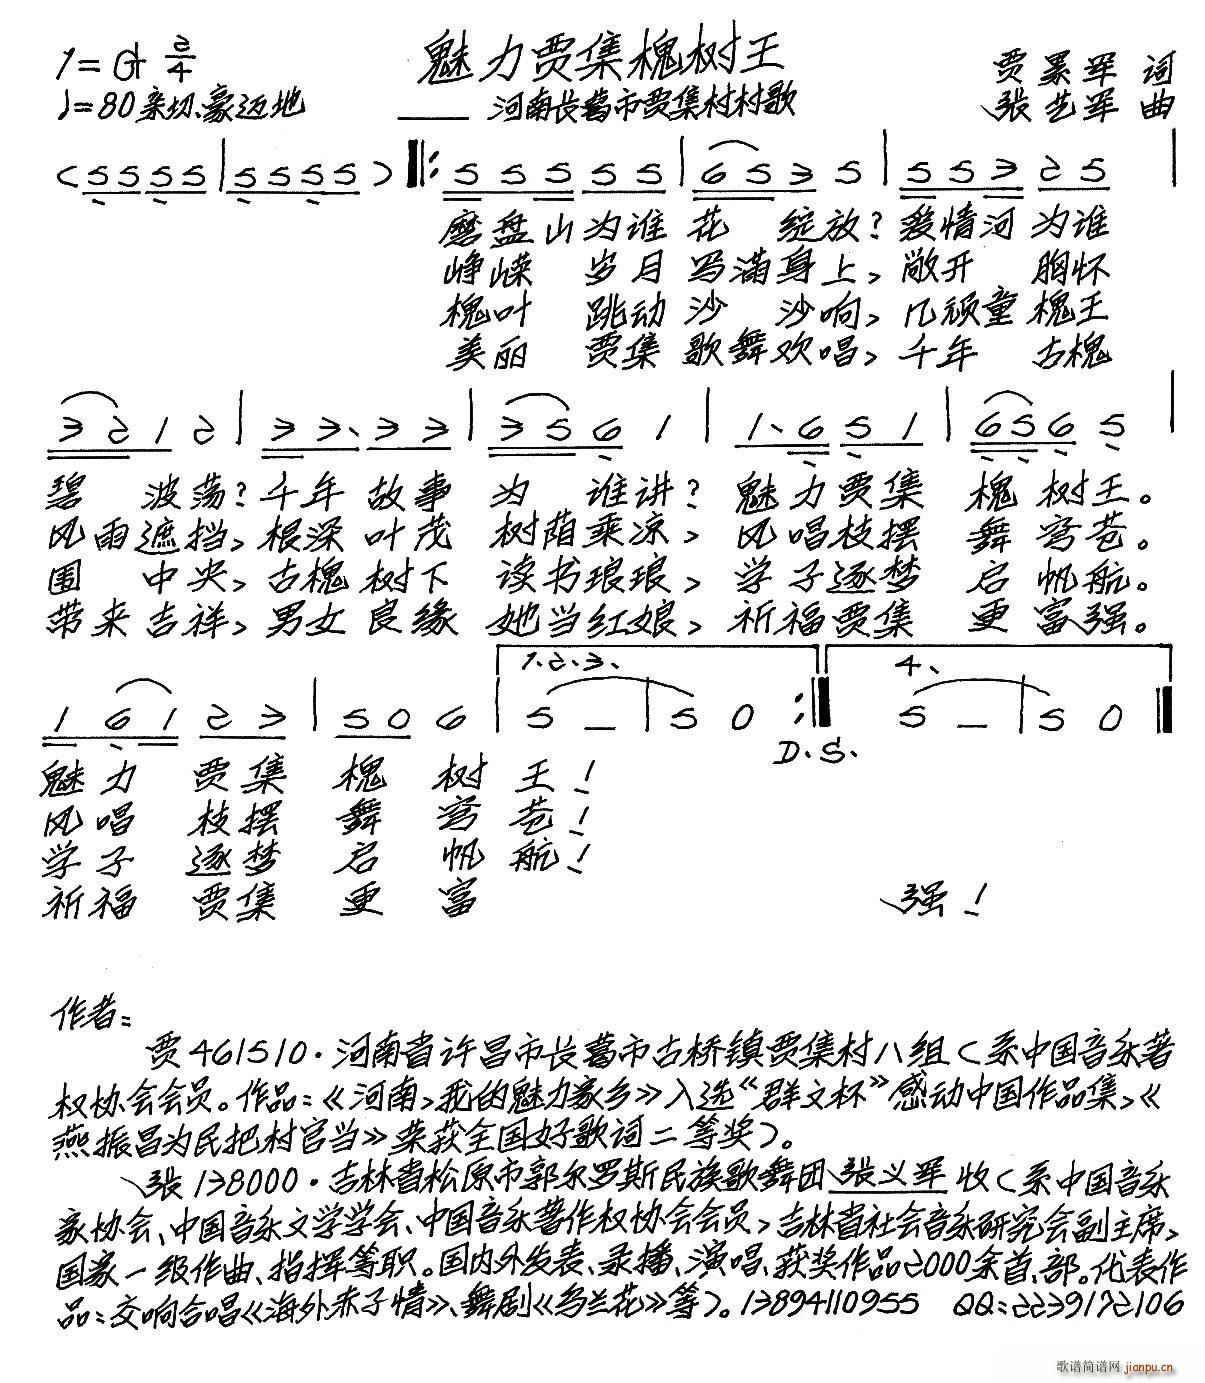 1=G 2/4
魅力贾集槐树王
贾累军 词
♩=80 亲切、豪迈地
——河南长葛市贾集村村歌
张艺军 曲
(5555|5555)‖:55555|6535|55325|
磨盘山为谁花绽放?爱情河为谁
峥嵘岁月写满身上,敞开胸怀
槐叶跳动沙沙响,几顽童槐王
美丽贾集歌舞欢唱,千年古槐
3212|33、33|3561|1、651|6565|
碧波荡?千年故事为谁讲?魅力贾集槐树王。
风雨遮挡,根深叶茂树荫乘凉,风唱枝摆舞穹苍。
围中央,古槐树下读书琅琅,学子逐梦启帆航。
带来吉祥,男女良缘她当红娘,祈福贾集更富强。
1.2.3、
4、
16123|506|5—|50:‖5—|50‖
D.S.
魅力贾集槐树王!
风唱枝摆舞穹苍!
学子逐梦启帆航!
祈福贾集更富强!
作者:
贾461510·河南省许昌市长葛市古桥镇贾集村八组(系中国音乐著
权协会会员。作品:《河南,我的魅力家乡》入选“群文杯”感动中国作品集,《
燕振昌为民把村官当》荣获全国好歌词二等奖)。
张138000·吉林省松原市郭尔罗斯民族歌舞团张义军收(系中国音乐
家协会、中国音乐文学学会、中国音乐著作权协会会员,吉林省社会音乐研究会副主席,
国家一级作曲、指挥等职。国内外发表、录播、演唱、获奖作品2000余首、部。代表作
品:交响合唱《海外赤子情》、舞剧《乌兰花》等)。13894110955 QQ:2239172106
歌谱简谱网 jianpu.cn